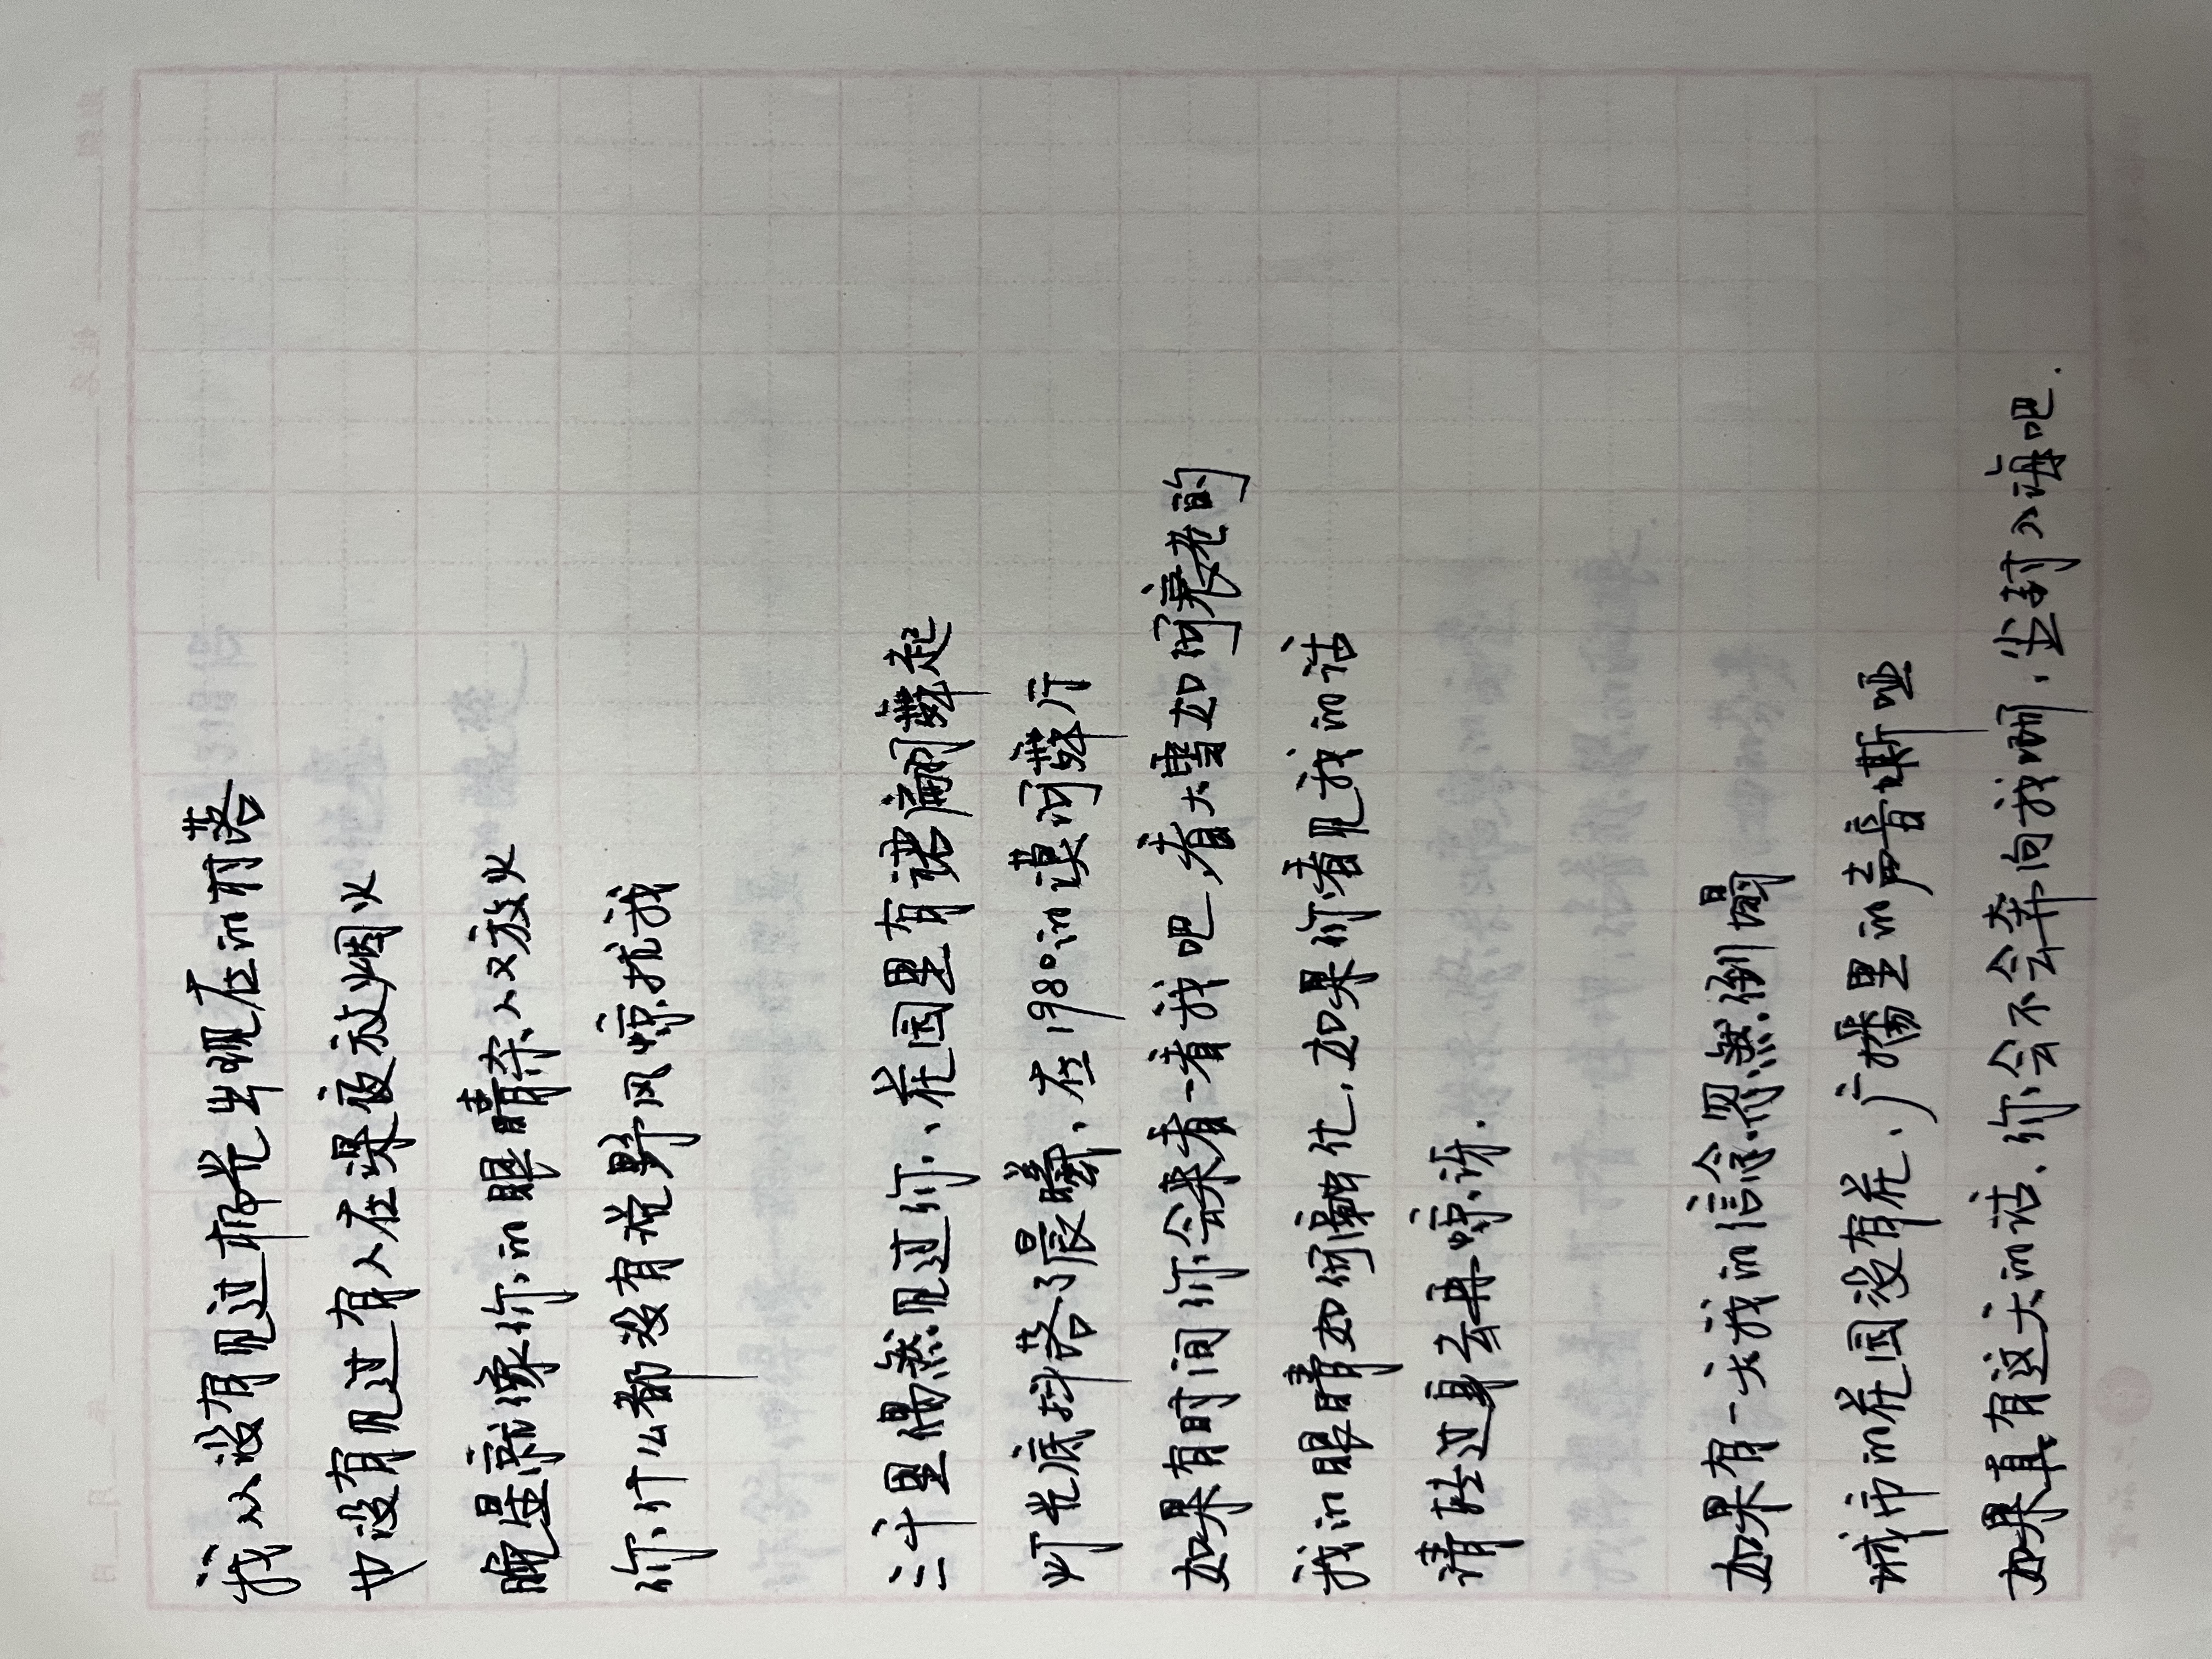 我从没有见过极光出现在的村落
也没有见过有人在深夜放烟火
晚星就像你的眼睛杀人又放火
你什么都没有说野风惊扰我
三千里偶然见过你、花园里有裙扇翩舞起
灯光底抖落了晨曦、在1980的漠河舞厅
如果有时间你会来看一看我吧、看大雪如何衰老的
我的眼睛如何融化、如果你看见我的话
请转过身去再惊讶.
如果有一天我的信念忽然倒塌
城市的花园没有花、广播里的声音嘶哑
如果真有这天的话、你会不会奔向我啊、尘封入海吧.